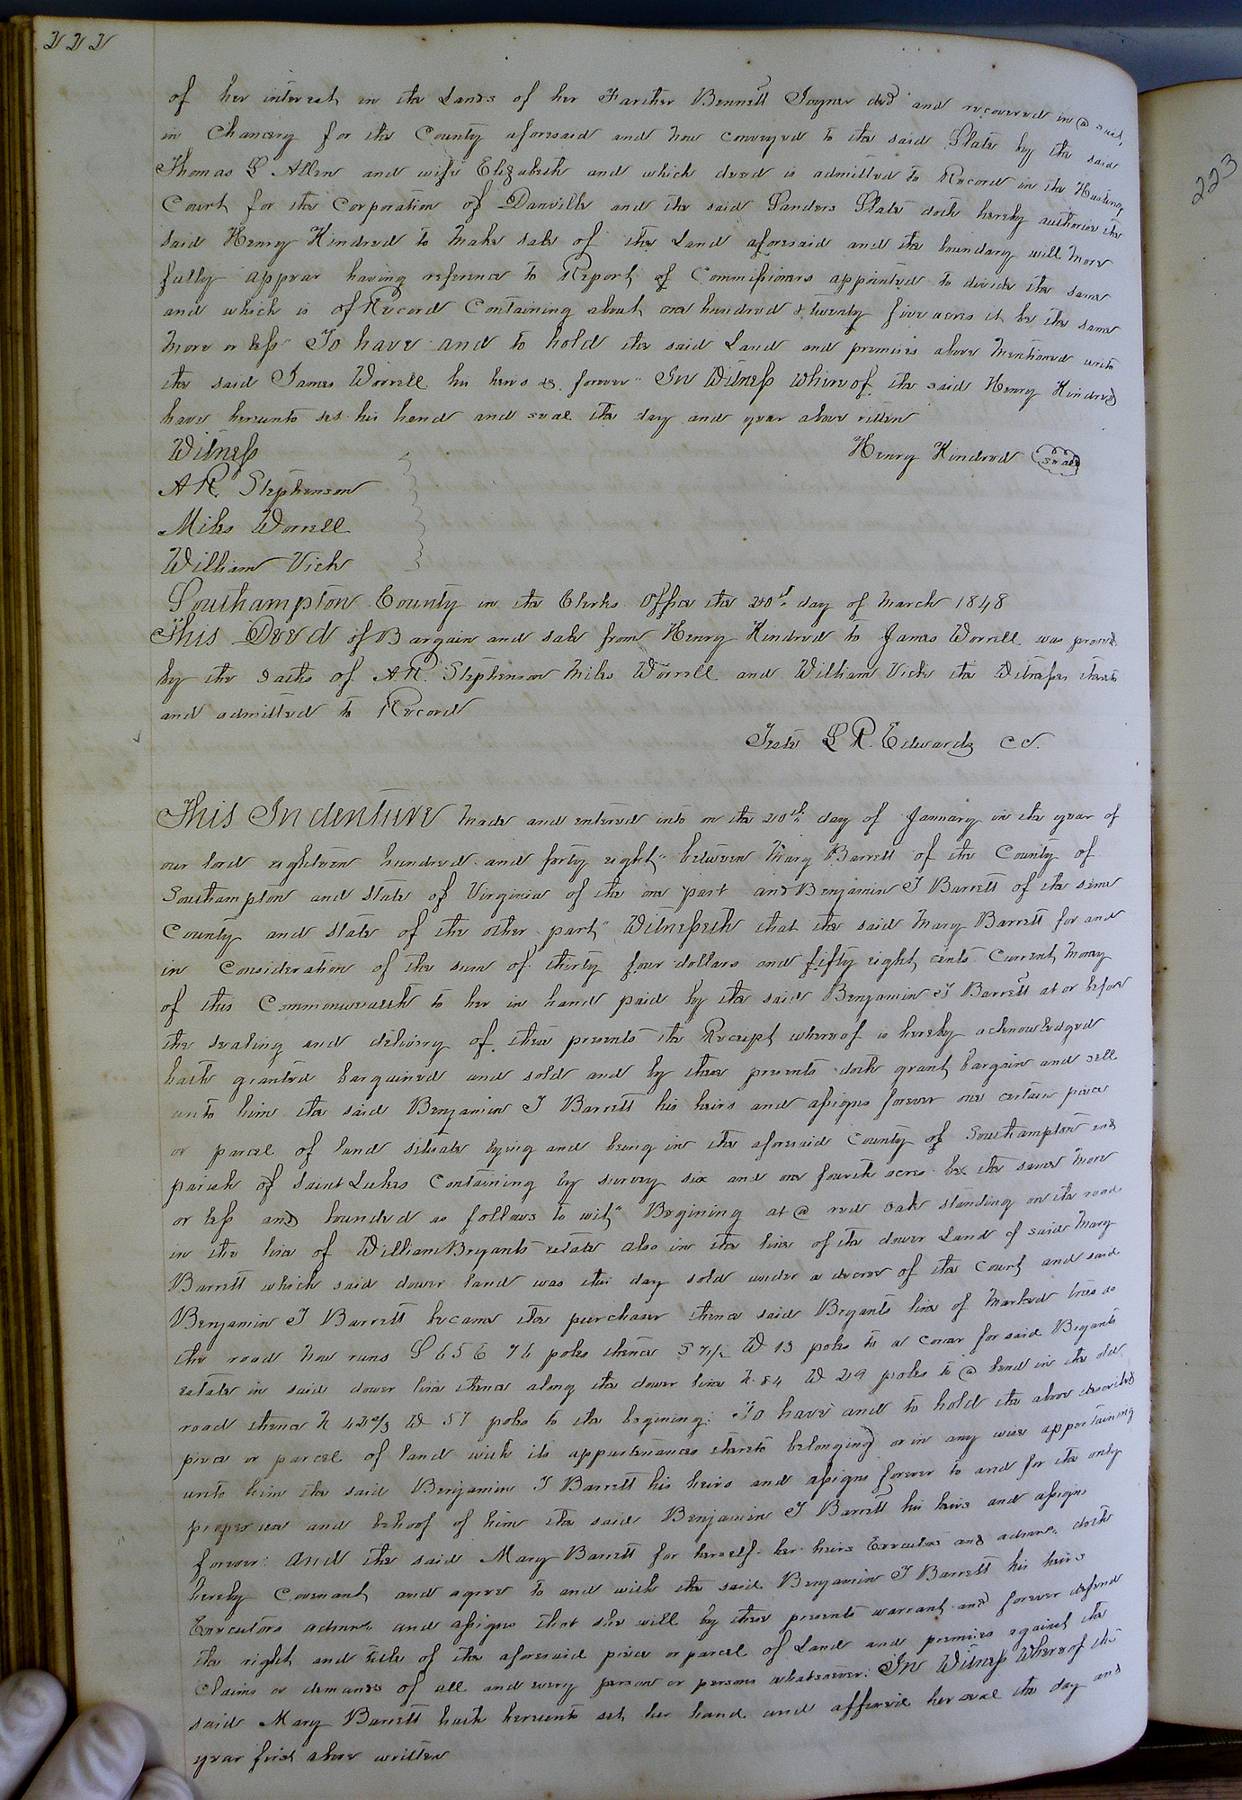 222
of her interest in the Lands of her Farther Bennett Joyner decd and recovered in a suit
in Chancery for the County aforesaid and now conveyed to the said Slate by the said
Thomas L Allen and wife Elizabeth and which deed is admitted to Record in the Hustings
Court for the Corporation of Danville and the said Sanders Slate doth hereby authorise the
said Henry Kindred to make sale of the Land aforesaid and the boundary will more
fully appear having reference to Report of Commissioners appointed to divide the same
and which is of Record Containing about one hundred & twenty five acres it be the same
more or less To have and to hold the said Land and premises above mentioned unto
the said James Worrell his heirs &c. forever" In Witness whereof the said Henry Kindred
have hereunto set his hand and seal the day and year above ritten
Witness
Henry Kindred Seal
A R. Stephenson
Miles Worrell
William Vick
Southampton County in the Clerks Office the 20th day of March 1848
This Deed of Bargain and sale from Henry Kindred to James Worrell was proved
by the oaths of A R. Stephenson Miles Worrell and William Vick the Witnesses thereto
and admitted to Record
Teste L R. Edwards CC.
This Indenture made and entered into on the 20th day of January in the year of
our lord eighteen hundred and forty eight" between Mary Barrett of the County of
Southampton and State of Virginia of the one part and Benjamin J Barrett of the same
County and state of the other part" Witnesseth that the said Mary Barrett for and
in Consideration of the sum of thirty four dollars and fifty eight cents Current money
of this Commonwealth to her in hand paid by the said Benjamin J Barrett at or before
the sealing and delivery of these presents the Receipt whereof is hereby acknowledged
hath granted bargained and sold and by these presents doth grant bargain and sell
unto him the said Benjamin J Barrett his heirs and assigns forever one certain piece
or parcel of land situate lying and being in the aforesaid County of Southampton and
parish of Saint Lukes Containing by survey six and one fourth acres be the same more
or less and bounded as follows to wit" Begining at a red oak standing on the road
in the line of William Bryants estate also in the line of the dower Land of said Mary
Barrett which said dower land was this day sold under a decree of the Court and said
Benjamin J Barrett became the purchaser thence said Bryants line of marked trees as
the road now runs S 65 E 76 poles thence S 7½ W 13 poles to a Corner for said Bryants
estate in said dower line thence along the dower line N 84 W 29 poles to a bend in the old
road thence N 42⅔ W 57 poles to the begining: To have and to hold the above described
piece or parcel of land with its appurtenances thereto belonging or in any wise appertaining
unto him the said Benjamin J Barrett his heirs and assigns forever to and for the only
proper use and behoof of him the said Benjamin J Barrett his heirs and assigns
forever: And the said Mary Barrett for herself her heirs Executors and admrs doth
hereby Covenant and agree to and with the said Benjamin J Barrett his heirs
Executors admrs and assigns that she will by these presents warrant and forever defend
the right and title of the aforesaid piece or parcel of Land and premises against the
Claims or demands of all and every person or persons whatsoever: In Witness Whereof the
said Mary Barrett hath hereunto set her hand and affixed her seal the day and
year first above written
223